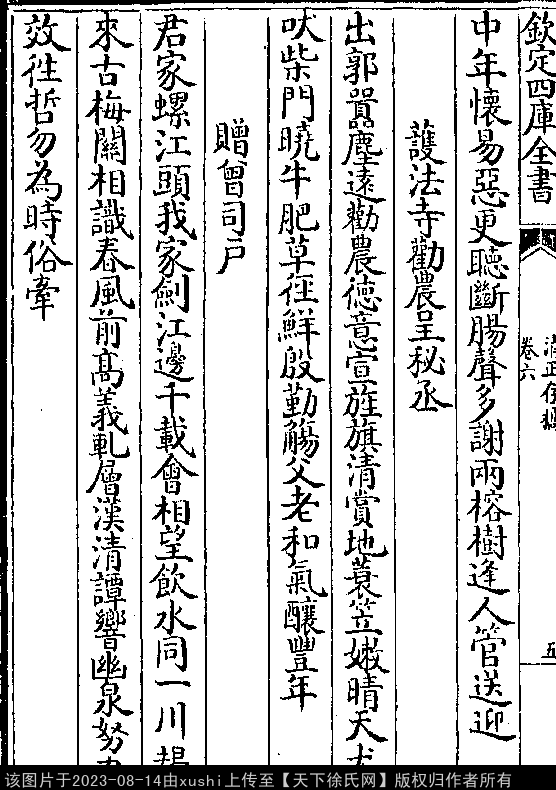 欽定四庫全書
卷六
中年懷易惡更聽斷腸聲多謝兩榕樹逢人管送迎
護法寺勸農呈秘丞
出郭囂塵遠勸農德意宣旌旗清賞地蓑笠嫩晴天犬
吠柴門曉牛肥草徑鮮殷勤觴父老和氣釀豐年
贈曾司戶
君家螺江頭我家劍江邊千載會相望飲水同一川
來古梅關相識春風前高義軋層漢清譚響幽泉努
效徃哲勿為時俗牽
该图片于2023-08-14由xushi上传至【天下徐氏网】版权归作者所有